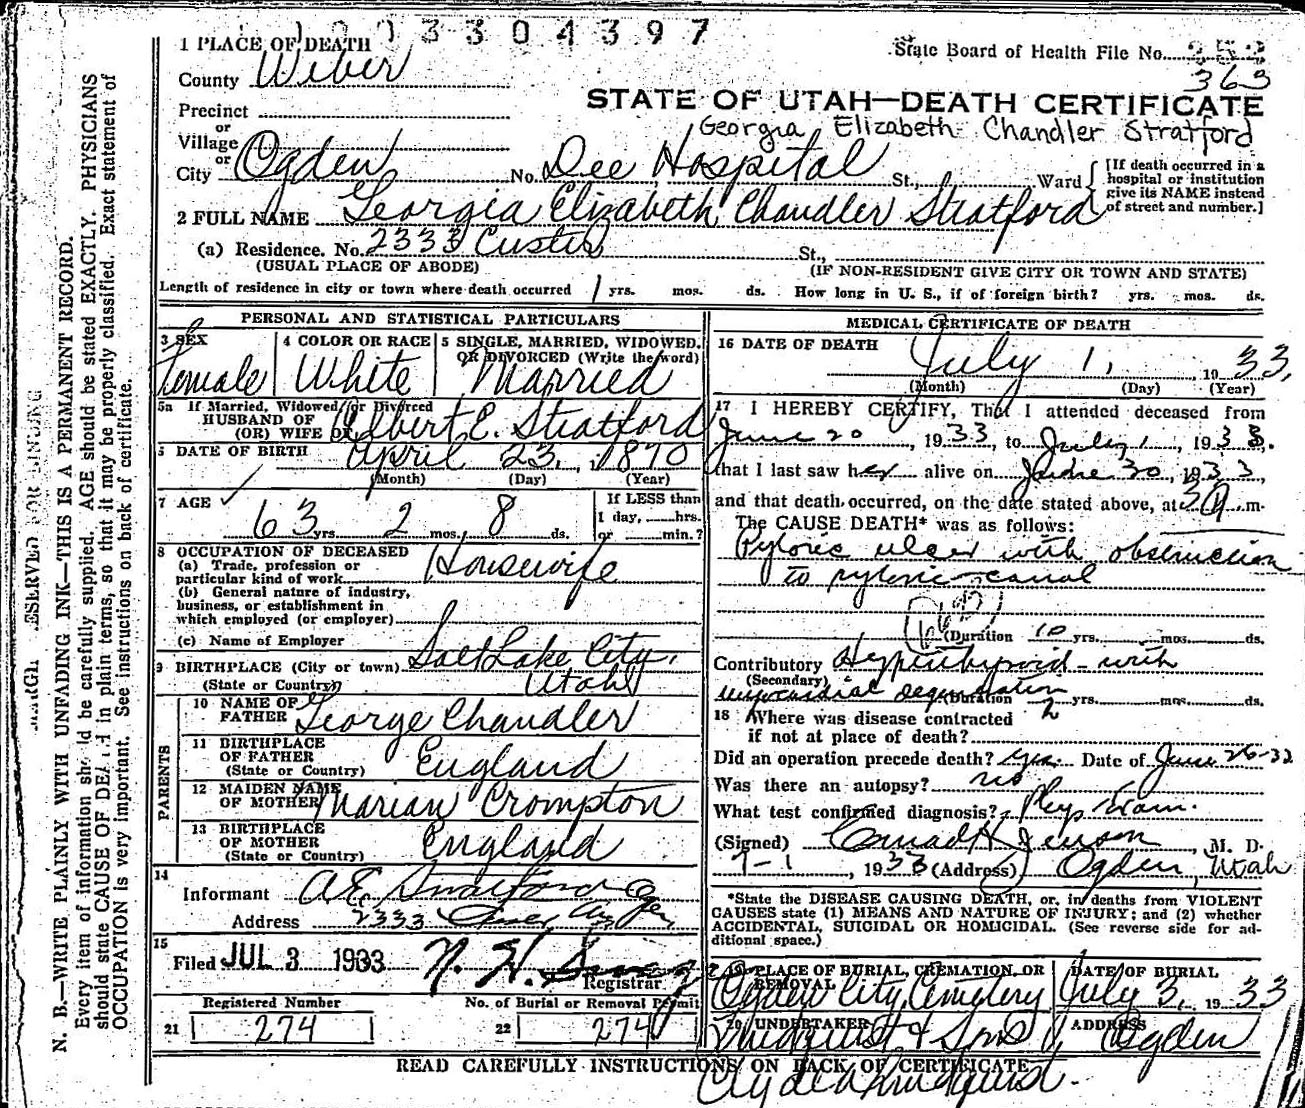 1003304397
1 PLACE OF DEATH
State Board of Health File No. 252
County Weber
363
STATE OF UTAH—DEATH CERTIFICATE
Precinct
Georgia Elizabeth Chandler Stratford
or
Village
or
City Ogden No. Dee Hospital St., Ward
[If death occurred in a hospital or institution give its NAME instead of street and number.]
2 FULL NAME Georgia Elizabeth Chandler Stratford
(a) Residence. No. 2333 Custer St.,
(USUAL PLACE OF ABODE) (IF NON-RESIDENT GIVE CITY OR TOWN AND STATE)
Length of residence in city or town where death occurred 1 yrs. mos. ds. How long in U. S., if of foreign birth? yrs. mos. ds.
PERSONAL AND STATISTICAL PARTICULARS
3 SEX Female
4 COLOR OR RACE White
5 SINGLE, MARRIED, WIDOWED, OR DIVORCED (Write the word) Married
5a If Married, Widowed or Divorced
HUSBAND OF
(OR) WIFE OF Albert E. Stratford
6 DATE OF BIRTH April 23, 1870
(Month) (Day) (Year)
7 AGE 63 yrs. 2 mos. 8 ds.
If LESS than
1 day, hrs.
or min.?
8 OCCUPATION OF DECEASED
(a) Trade, profession or
particular kind of work Housewife
(b) General nature of industry,
business, or establishment in
which employed (or employer)
(c) Name of Employer
9 BIRTHPLACE (City or town) Salt Lake City,
(State or Country) Utah
PARENTS
10 NAME OF
FATHER George Chandler
11 BIRTHPLACE
OF FATHER
(State or Country) England
12 MAIDEN NAME
OF MOTHER Marian Crompton
13 BIRTHPLACE
OF MOTHER
(State or Country) England
14
Informant A.E. Stratford
Address 2333
15
Filed JUL 3 1933 N. H.
Registrar
Registered Number No. of Burial or Removal Permit
21 274 22 274
MEDICAL CERTIFICATE OF DEATH
16 DATE OF DEATH July 1, 1933,
(Month) (Day) (Year)
17 I HEREBY CERTIFY, That I attended deceased from
June 20, 1933, to July 1, 1933.
that I last saw her alive on June 30, 1933,
and that death occurred, on the date stated above, at 3 m.
The CAUSE DEATH* was as follows:
Pyloric ulcer with obstruction
to pyloric canal
(Duration 10 yrs. mos. ds.
Contributory Hyperthyroid with
(Secondary)
myocardial degeneration (Duration 2 yrs. mos. ds.
18 Where was disease contracted
if not at place of death?
Did an operation precede death? yes. Date of June 26-33
Was there an autopsy? no
What test confirmed diagnosis? Phys Exam.
(Signed) Conrad H Jenson, M. D.
7-1, 1933 (Address) Ogden, Utah
*State the DISEASE CAUSING DEATH, or, in deaths from VIOLENT
CAUSES state (1) MEANS AND NATURE OF INJURY; and (2) whether
ACCIDENTAL, SUICIDAL OR HOMICIDAL. (See reverse side for ad-
ditional space.)
19 PLACE OF BURIAL, CREMATION, OR REMOVAL DATE OF BURIAL
Ogden City Cemetery July 3, 1933
20 UNDERTAKER ADDRESS
Lindquist & Sons Ogden
READ CAREFULLY INSTRUCTIONS ON BACK OF CERTIFICATE
Clyde Lindquist.
N. B.—WRITE PLAINLY WITH UNFADING INK—THIS IS A PERMANENT RECORD.
Every item of information should be carefully supplied. AGE should be stated EXACTLY. PHYSICIANS
should state CAUSE OF DEATH in plain terms, so that it may be properly classified. Exact statement of
OCCUPATION is very important. See instructions on back of certificate.